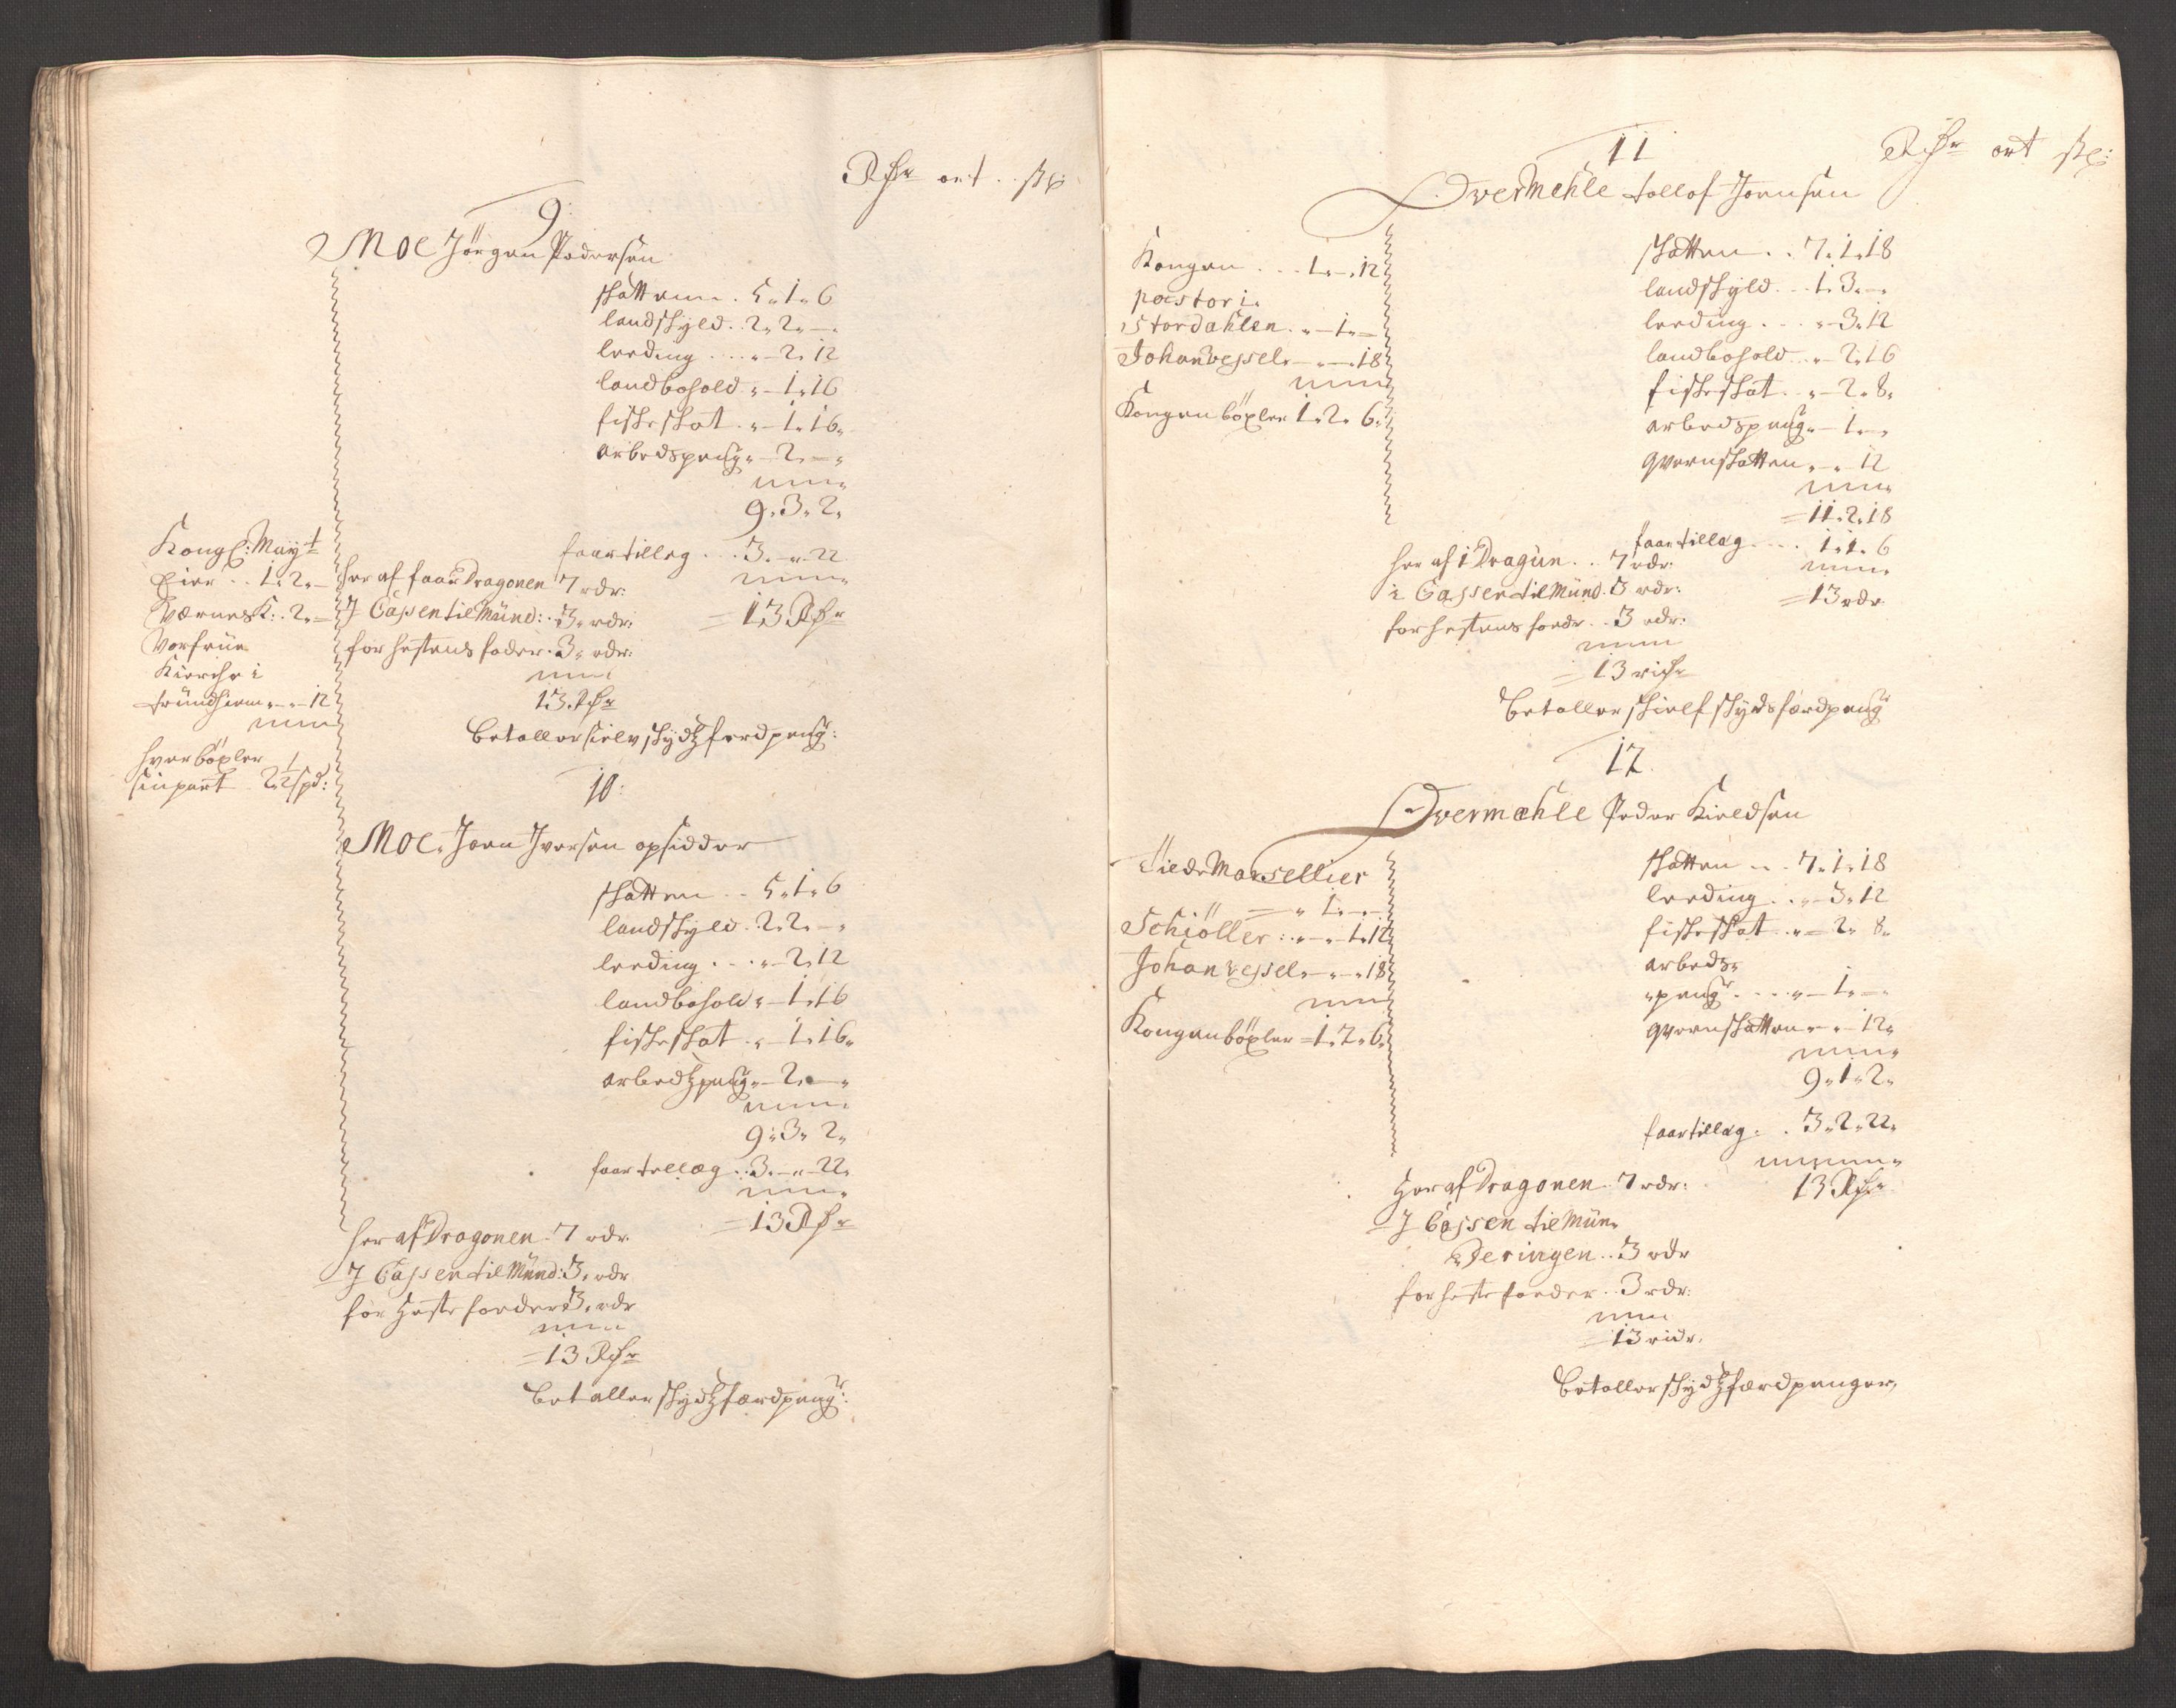 Rdr ort sk:
9.
Moe Jörgen Pedersen
skatten . 5. 1. 6
landskyld . 2. 2. –
leeding . . . „ – 2. 12
landbohold „ – 1. 16
fiskeskat . „ – 1. 16.
arbedspeng „ – 2. – „
9. 3. 2.
faar tilleg . . . 3. – „ 22
her af faar Dragonen 7 rdr:
J Cassen til Münd: . 3. rdr:
= 13 Rdr
for hestens foder . 3. rdr:
13. Rdr
betaller sielv skydtzferdpeng:
Kongl: Mayt
Eier . . 1. 2. –
Værnes K: . 2. =
Vorfrue
Kierche i
trundhiem „ – „ – 12
hver böxler
sin part 2 1/2 spd:
10:
Moe. Joen Iversen opsidder
skatten . . 5. 1. 6
landskyld . 2. 2. – „
leeding . . . „ – 2. 12
landbohold „ – 1. 16
fiskeskat . „ – 1. 16.
arbedtzpeng „ – 2. – „
9. 3. 2.
faar tellæg . . 3. – „ – 22.
= 13 Rdr
her af Dragonen . 7 rdr.
J Cassen til Münd: 3. rdr
for heste foeder 3. rdr
= 13 Rdr
betaller skydtzfærdpeng:
Rdr ort sk:
11
Overmehle tollof Joensen
Kongen . . . 1. – . 12
pastor i
Stordahlen . „ – 1. –
Johan vessel „ – „ – . 18
Kongen böxler 1. 2. 6.
skatten . . 7. 1. 18
landskyld . . . 1. 3. –
leeding . . . „ – 3. 12
landbohold . . „ – 2. 16
fiskeskat . „ – 2. 8.
arbedspeng „ – 1. – „
qvernskatten „ – „ 12
= 11. 2. 18
faar tillæg . . . . 1. 1. 6
= 13 rdr.
her af i Dragun . . 7 rdr:
i Cassen til Münd. 3 rdr:
for hestens foedr . . 3 rdr:
= 13 rdr
betaller skielf skydsfærdpeng
12
Overmæhle Peder Kieldsen
Tilde Marsellier
= „ 1. – . –
Schiöller : . „ – „ – 1. 12
Johan vessel „ – „ – . 18
Kongen böxler = 1. 2. 6.
skatten . . . 7. 1. 18
leeding . . „ – 3. 12
fiskeskat . „ – 2. 8.
arbeds„
„peng . . . . „ – 1. –
qvernskatten „ – „ – 12.
9. 1. 2.
faar tillæg . . 3. 2. 22.
13 Rdr
Her af Dragonen . 7 rdr:
J Cassen til Mün„
„deringen . . 3 rdr
for heste foeder . . 3 rdr:
= 13 rdr.
betaller skydtzfærdpenger,